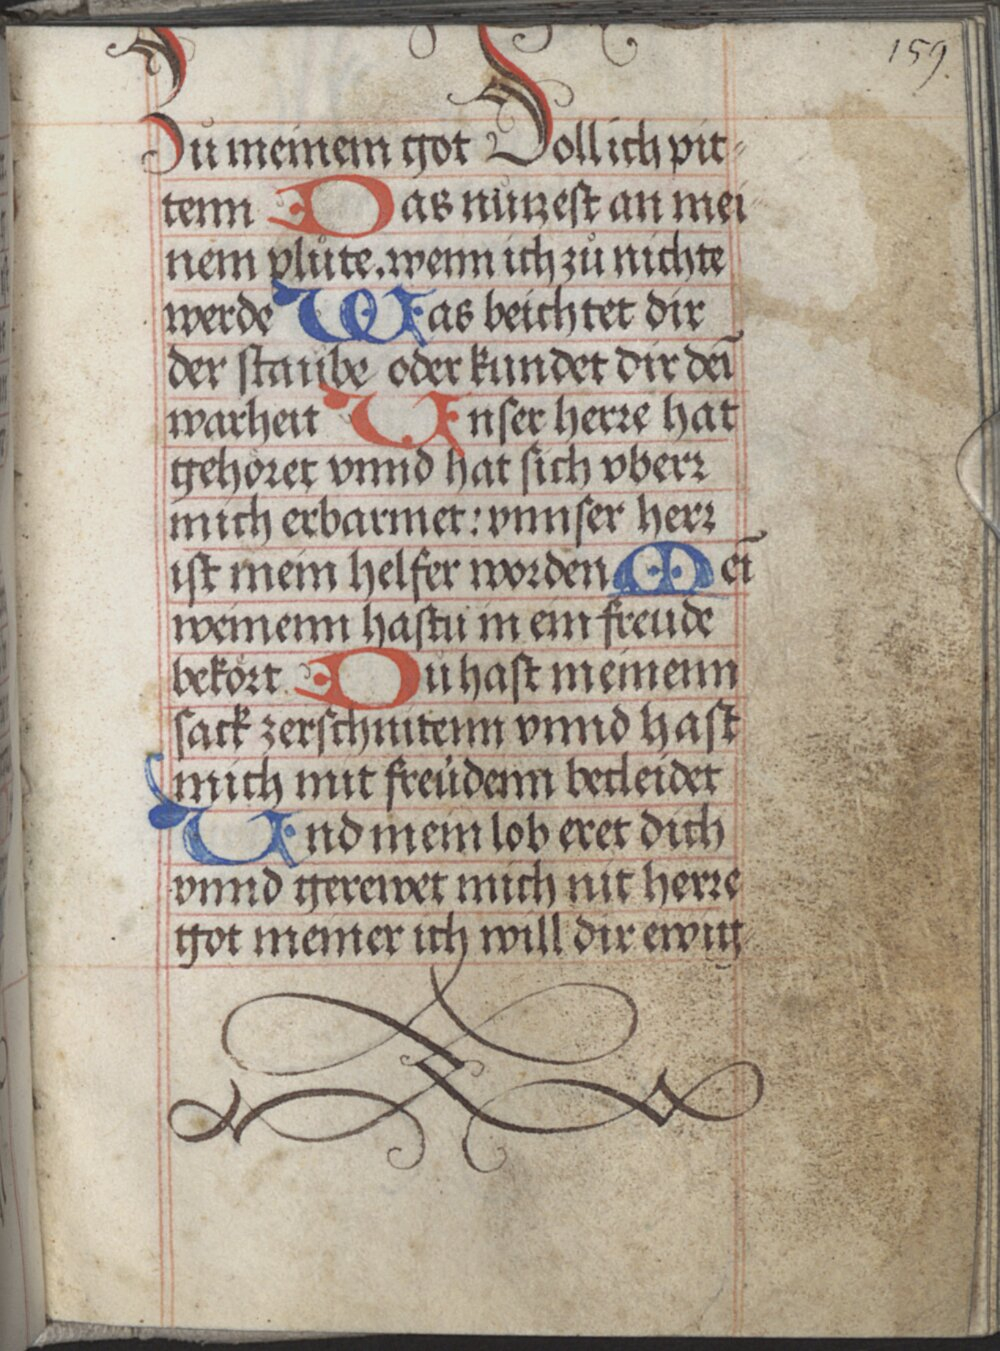 159.
Zu meinem got Soll ich pit-
tenn Das nützest an mei
nem plůte. wenn ich zů nichte
werde Was beichtet dir
der staube oder kundet dir deī
warheit Unser herre hat
gehöret vnnd hat sich vberr
mich erbarmet: vnnser herr
ist mein helfer worden Meī
weinenn hastu in ein freude
bekört Du hast meinenn
sack zerschnitenn vnnd hast
mich mit freüdenn becleidet
Und mein lob eret dich
vnnd gerewet mich nit herre
got meiner ich will dir ewig